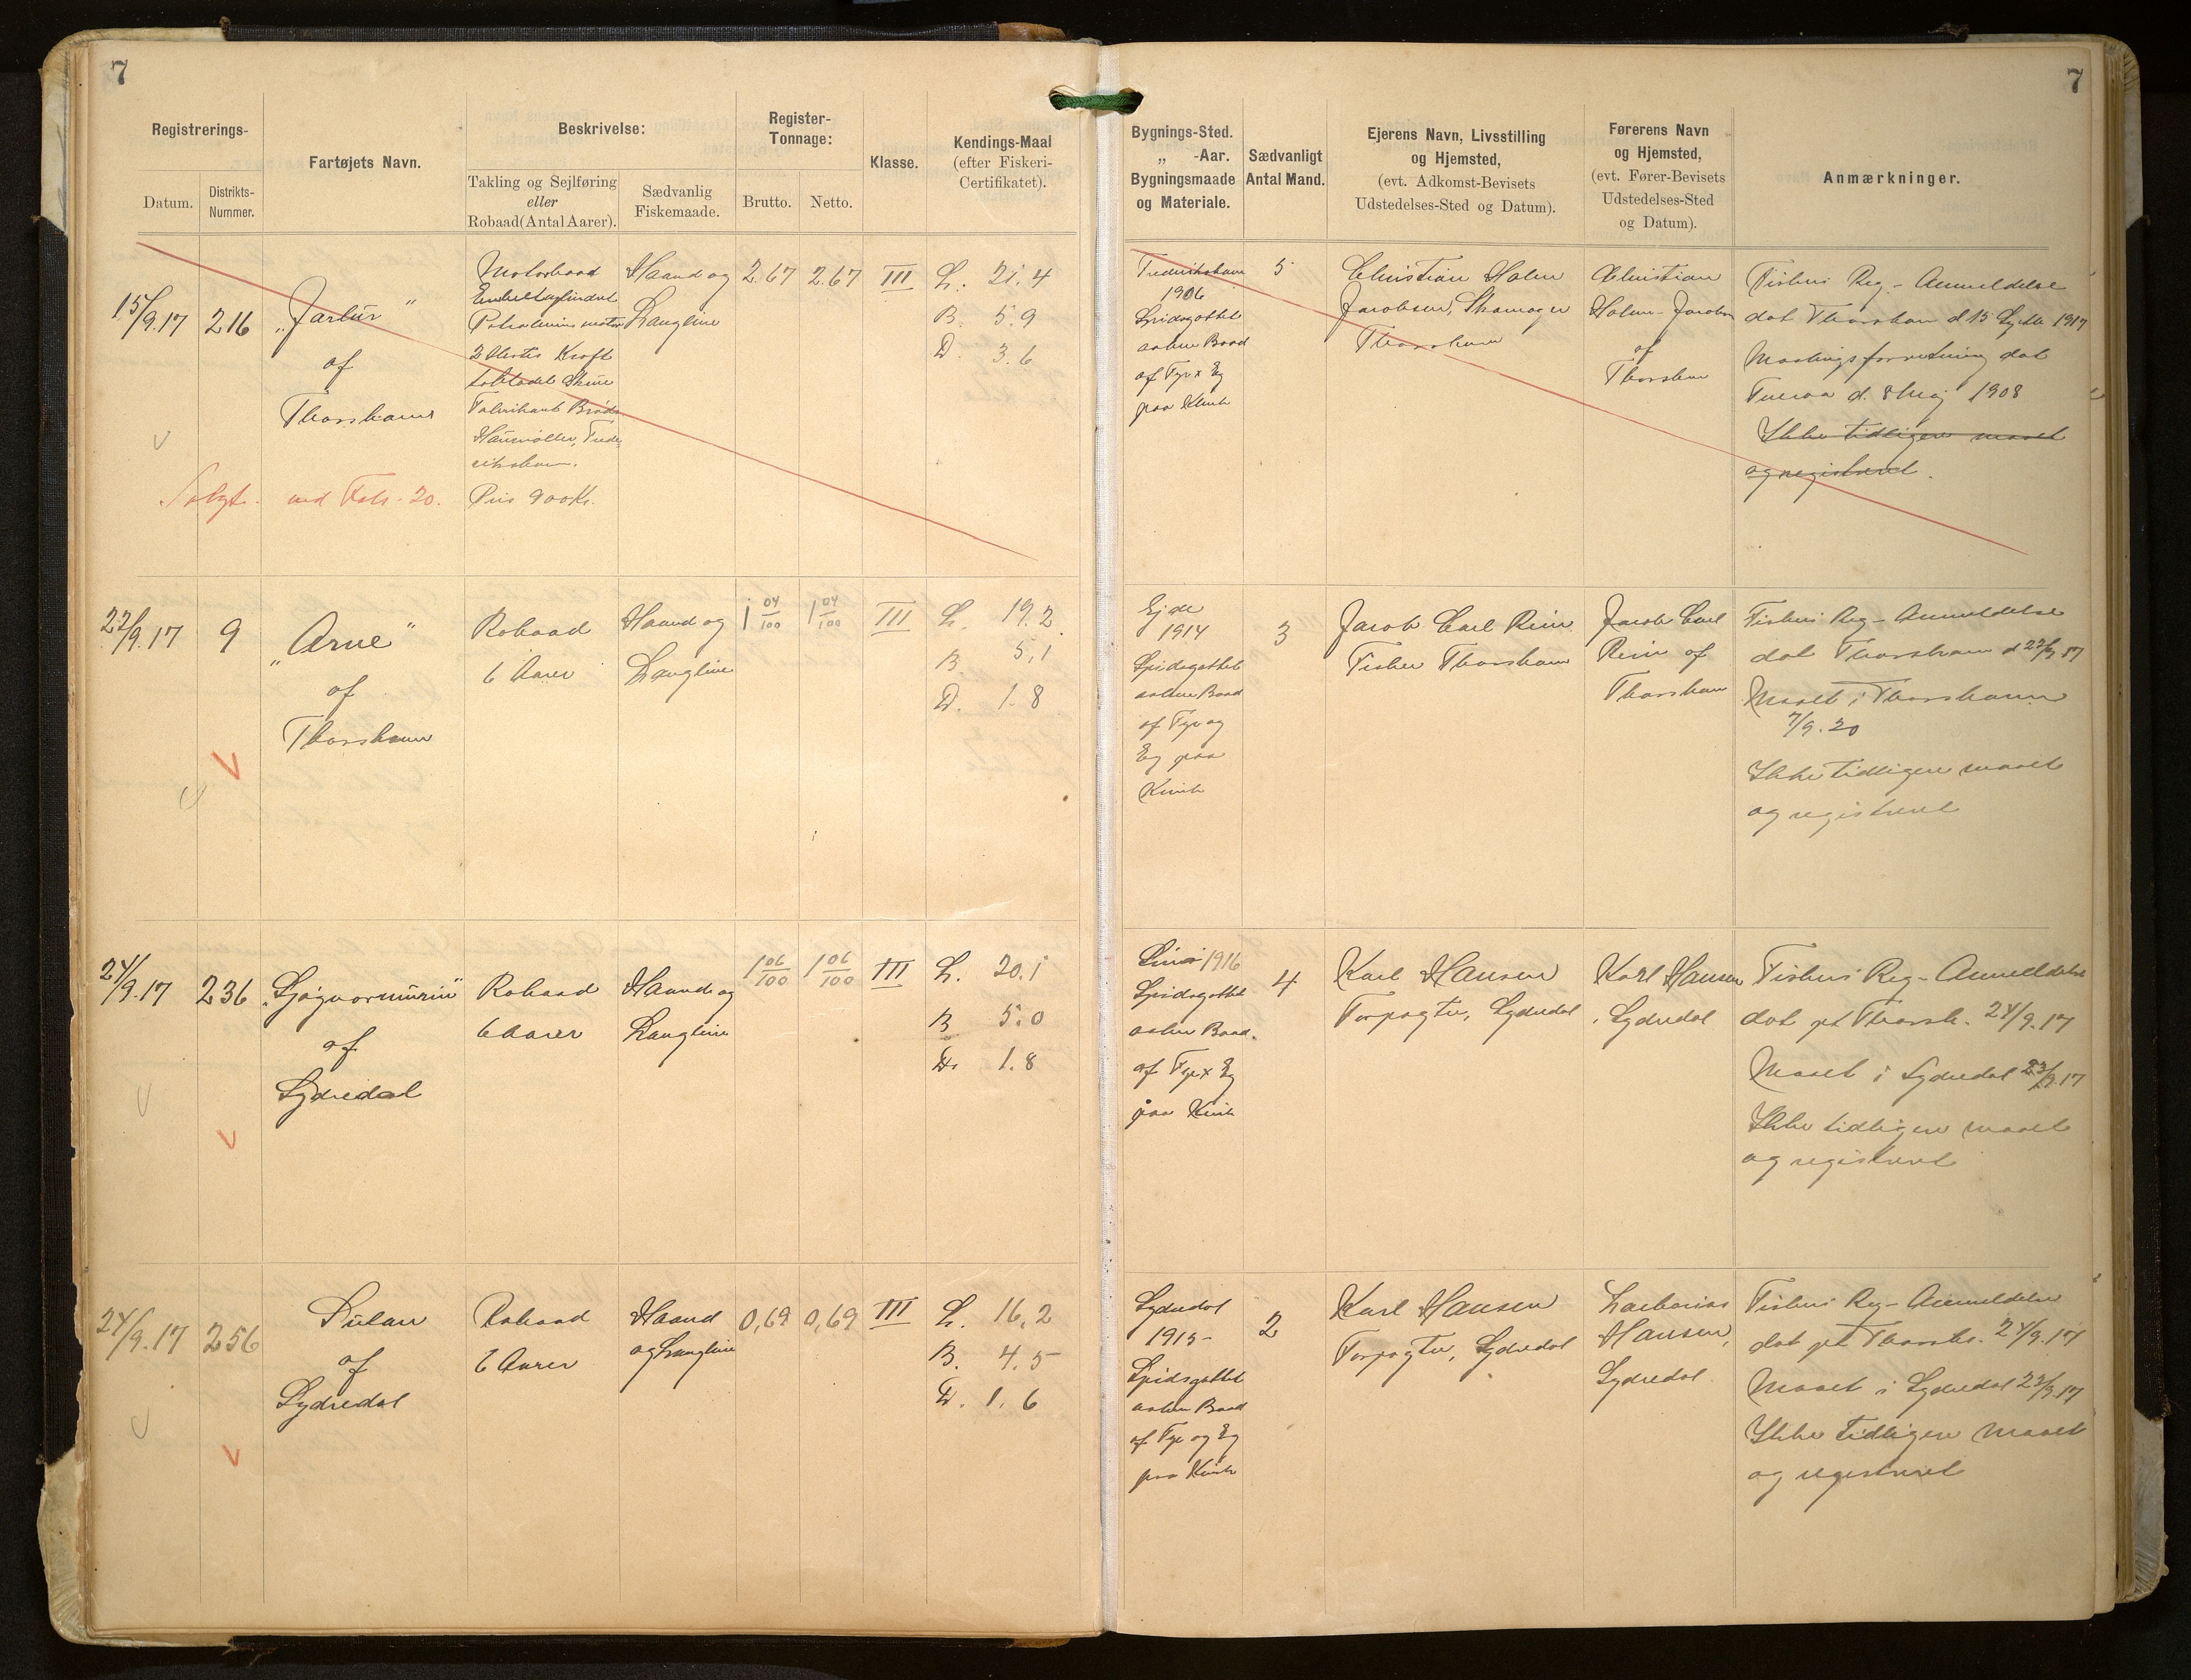 7
7
Registrerings-
Datum.
Distrikts-
Nummer.
Fartøjets Navn.
Beskrivelse:
Takling og Sejlføring
eller
Robaad (Antal Aarer).
Sædvanlig
Fiskemaade.
Register-
Tonnage:
Brutto.
Netto.
Klasse.
Kendings-Maal
(efter Fiskeri-
Certifikatet).
Bygnings-Sted.
„ -Aar.
Bygningsmaade
og Materiale.
Sædvanligt
Antal Mand.
Ejerens Navn, Livsstilling
og Hjemsted,
(evt. Adkomst-Bevisets
Udstedelses-Sted og Datum).
Førerens Navn
og Hjemsted,
(evt. Fører-Bevisets
Udstedelses-Sted
og Datum).
Anmærkninger.
15/9.17
216
„Jarlur“
af
Thorshavn
Solgt. Fols. 20.
Motorbaad
Petroleumsmotor
2 Hestes Kraft
Fabrikant Brødr
Frede-
rikshavn.
Pris 900 Kr.
Haand og
Langline
2.67
2.67
III
L. 21.4
B. 5.9
D. 3.6
Frederikshavn
1906
Spidsgattet
aaben Baad
af Fyr & Eg
paa Klink
5
Christian Holm
Jacobsen,
Thorshavn
Christian
Holm-Jacobsen
af
Thorshavn
Fiskeri Reg.-Anmeldelse
dat Thorshavn d. 15 Septb 1917
Maalingsforretning dat
d. 8 Maj 1908
Ikke tidligere maalt
og registreret.
22/9.17
9
„Arne“
af
Thorshavn
Robaad
6 Aarer
Haand og
Langline
1 04/100
1 04/100
III
L. 19.2
B. 5,1
D. 1.8
Ejde
1914
Spidsgattet
aaben Baad
af Fyr og
Eg paa
Klink
3
Jacob Carl Rein
Fisker Thorshavn
Jacob Carl
Rein af
Thorshavn
Fiskeri Reg-Anmeldelse
dat Thorshavn d 22/9 17
Maalt i Thorshavn
7/9.20
Ikke tidligere maalt
og registreret
24/9.17
236
„Sjógvarmúrin“
af
Sydredal
Robaad
6 Aarer
Haand og
Langline
1 06/100
1 06/100
III
L. 20.1
B 5.0
D. 1.8
1916
Spidsgattet
aaben Baad
af Fyr & Eg
paa Klink
4
Karl Hansen
Forpagter, Sydredal
Karl Hansen
, Sydredal
Fiskeri Reg-Anmeldelse
dat pt Thorsh. 24/9.17
Maalt i Sydredal 23/9.17
Ikke tidligere maalt
og registreret
24/9.17
256
Súlan
af
Sydredal
Robaad
6 Aarer
Haand
og Langline
0,69
0,69
III
L. 16,2
B. 4.5
D. 1.6
Sydredal
1915
Spidsgattet
aaben Baad
af Fyr og Eg
paa Klink
2
Karl Hansen
Forpagter, Sydredal
Zacharias
Hansen,
Sydredal
Fiskeri Reg-Anmeldelse
dat pt Thorsh. 24/9.17
Maalt i Sydredal 23/9.17
Ikke tidligere maalt
og registreret